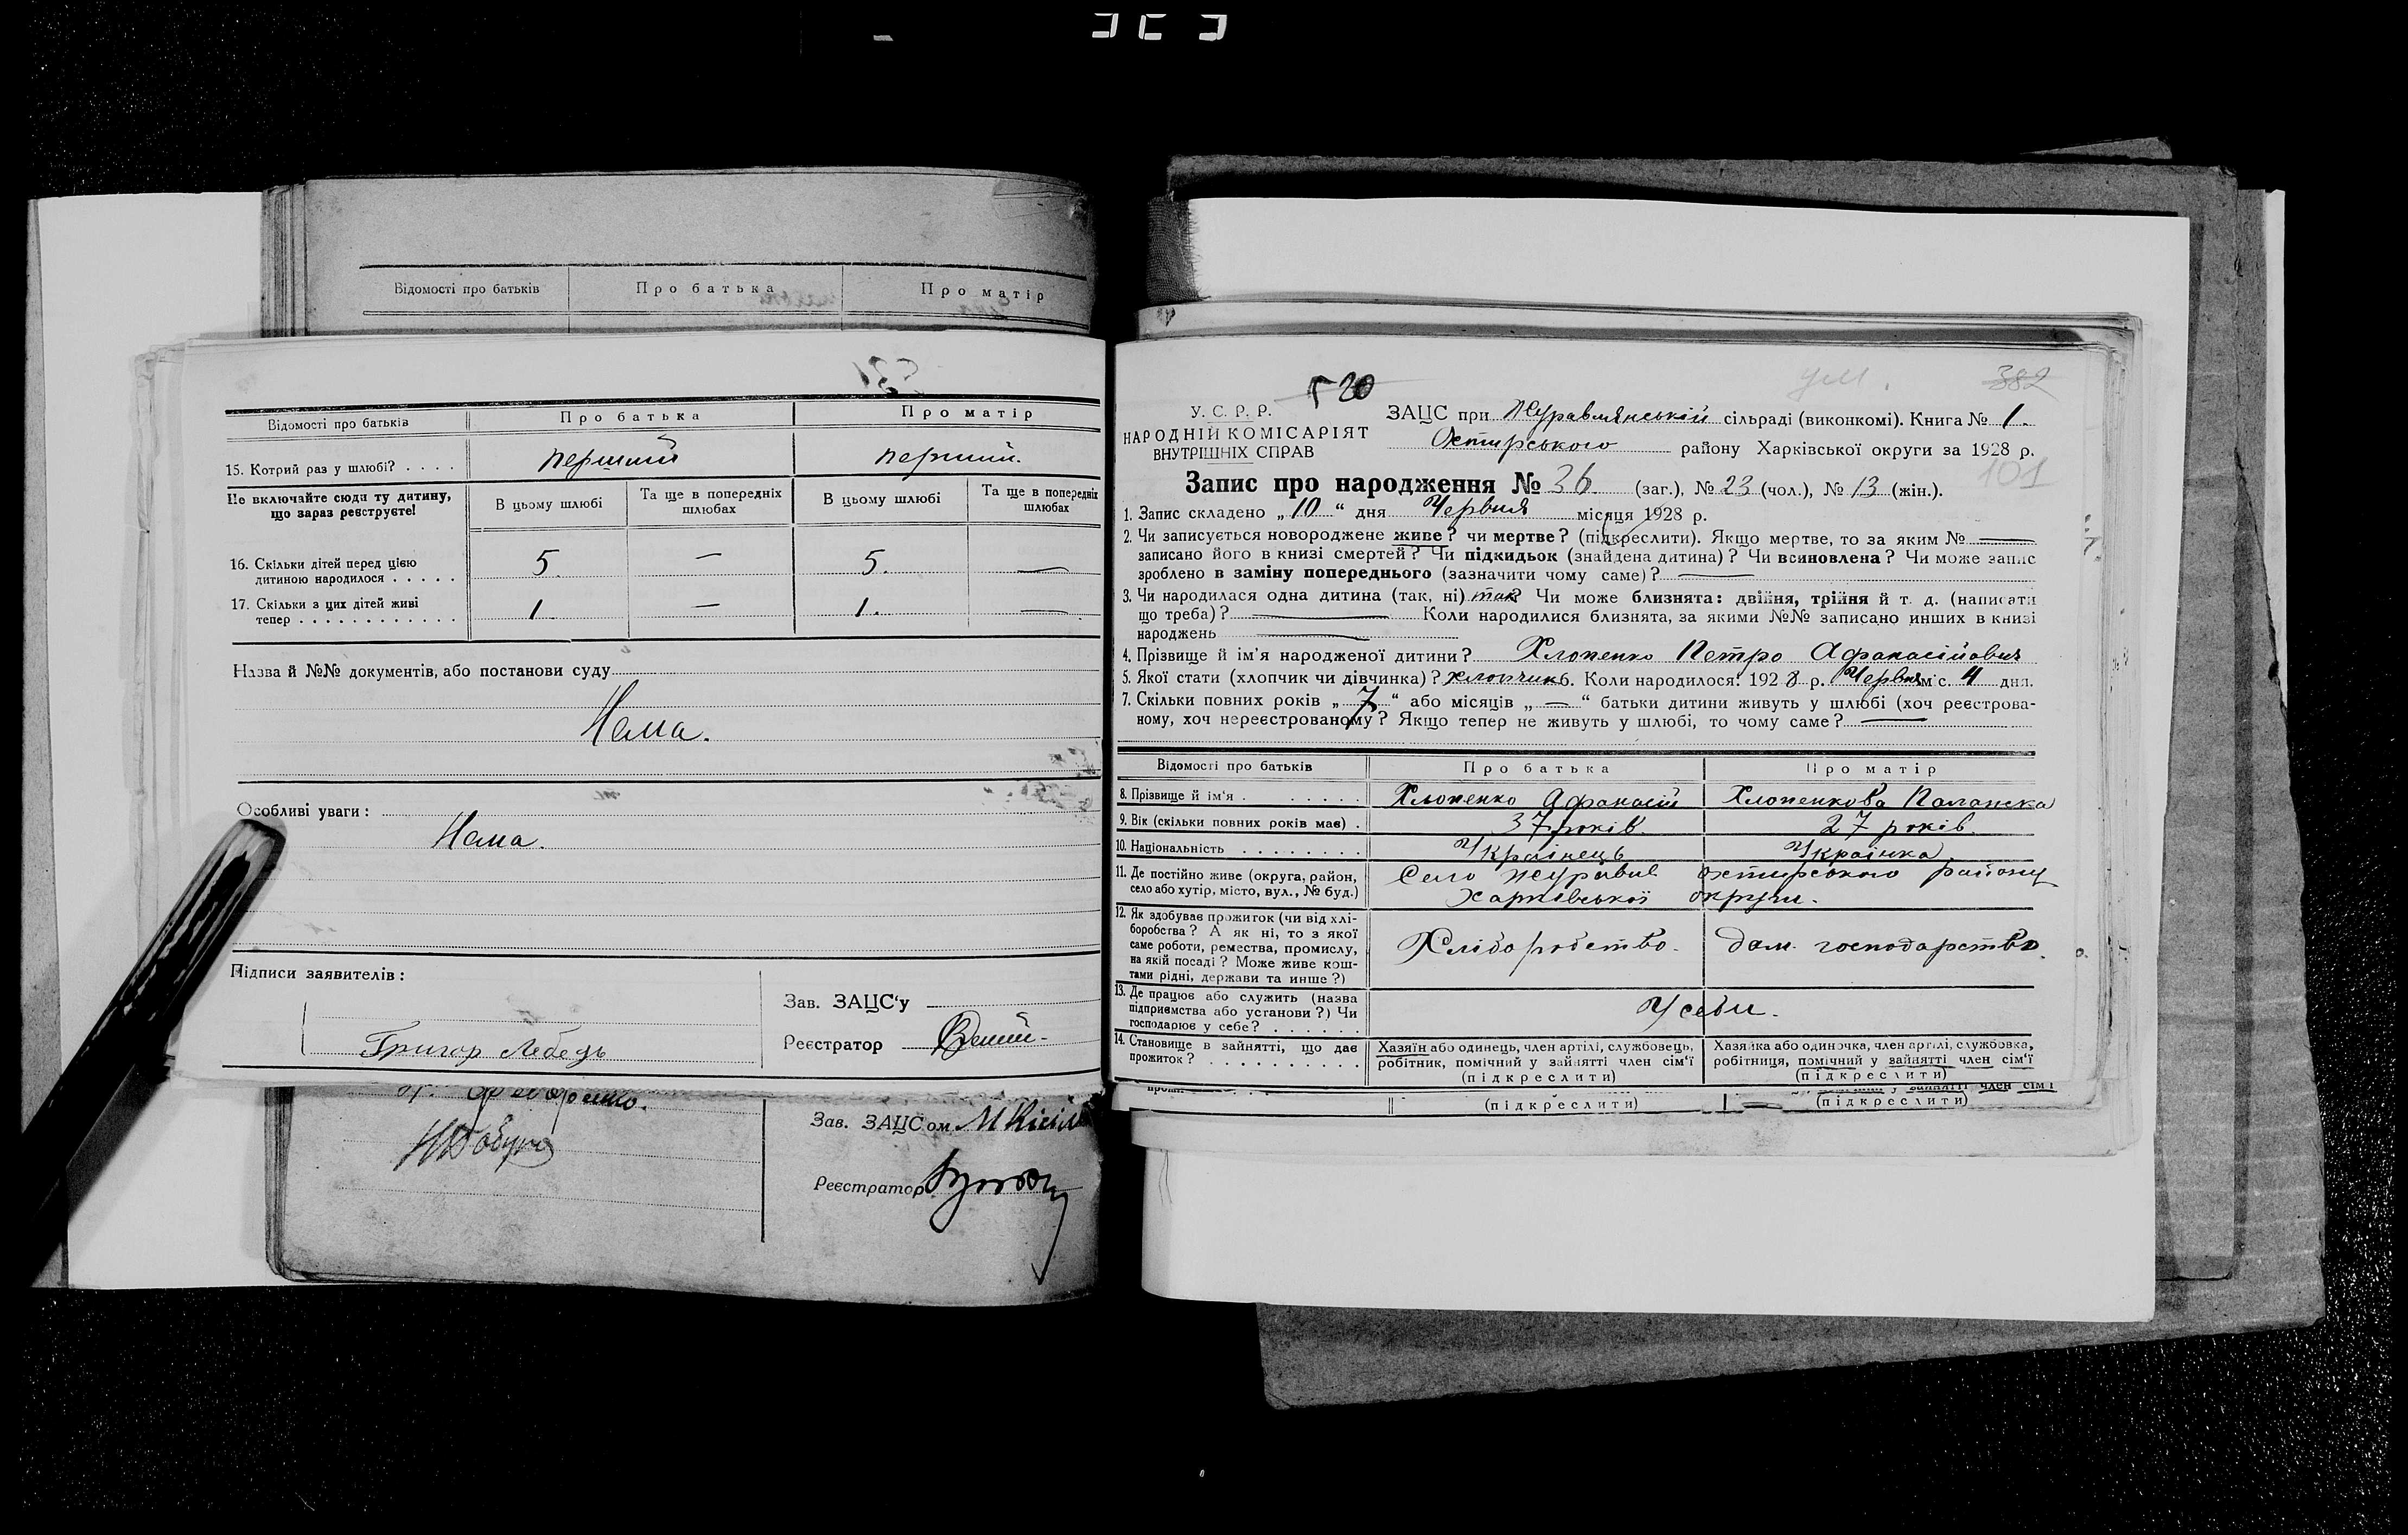 Відомості про батьків
Про батька
Про матір
Відомості про батьків
Про батька
Про матір
15. Котрий раз у шлюбі? . . . .
перший
перший.
Не включайте сюди ту дитину,
що зараз реєструєте!
В цьому шлюбі
Та ще в попередніх
шлюбах
В цьому шлюбі
Та ще в попередніх
шлюбах
16. Скільки дітей перед цією
дитиною народилося . . . . .
5.
—
5.
—
17. Скільки з цих дітей живі
тепер . . . . . . . . . . . .
1.
—
1.
—
Назва й №№ документів, або постанови суду
Нема.
Особливі уваги:
Нема.
Підписи заявителів:
Григор Лебедь
Зав. ЗАЦС'у
Реєстратор
Зав. ЗАЦС ом
Реєстратор
520
382
У. С. Р. Р.
НАРОДНІЙ КОМІСАРІЯТ
ВНУТРІШНІХ СПРАВ
ЗАЦС при Журавлянській сільраді (виконкомі). Книга № 1.
Охтирського району Харківської округи за 1928 р.
101
Запис про народження № 36 (заг.), № 23 (чол.), № 13 (жін.).
1. Запис складено „10“ дня Червня місяця 1928 р.
2. Чи записується новороджене живе? чи мертве? (підкреслити). Якщо мертве, то за яким № —
записано його в книзі смертей? Чи підкидьок (знайдена дитина)? Чи всиновлена? Чи може запис
зроблено в заміну попереднього (зазначити чому саме)? —
3. Чи народилася одна дитина (так, ні) так? Чи може близнята: двійня, трійня й т. д. (написати
що треба)? — Коли народилися близнята, за якими №№ записано инших в книзі
народжень —
4. Прізвище й ім'я народженої дитини? Хлопенко Петро Афанасійович
5. Якої стати (хлопчик чи дівчинка)? хлопчик 6. Коли народилося: 1928 р. Червня міс. 4 дня.
7. Скільки повних років „7“ або місяців „—“ батьки дитини живуть у шлюбі (хоч реєстрова-
ному, хоч нереєстрованому? Якщо тепер не живуть у шлюбі, то чому саме? —
Відомості про батьків
Про батька
Про матір
8. Прізвище й ім'я . . . . . . .
Хлопенко Афанасій
Хлопенкова Палажка
9. Вік (скільки повних років має) .
37 років.
27 років.
10. Національність . . . . . . . .
Українець
Українка.
11. Де постійно живе (округа, район,
село або хутір, місто, вул., № буд.)
Село Журавне Охтирського району
Харківської округи.
12. Як здобуває прожиток (чи від хлі-
боробства? А як ні, то з якої
саме роботи, ремества, промислу,
на якій посаді? Може живе кош-
тами рідні, держави та инше?)
Хліборобство.
дом. господарство.
13. Де працює або служить (назва
підприємства або установи?) Чи
господарює у себе? . . . . . .
У себи.
14. Становище в зайнятті, що дає
прожиток? . . . . . . . . . .
Хазяїн або одинець, член артілі, службовець,
робітник, помічний у зайнятті член сім'ї
(підкреслити)
Хазяйка або одиночка, член артілі, службовка,
робітниця, помічний у зайнятті член сім'ї
(підкреслити)
у зайнятті член сім'ї
(підкреслити)
(підкреслити)